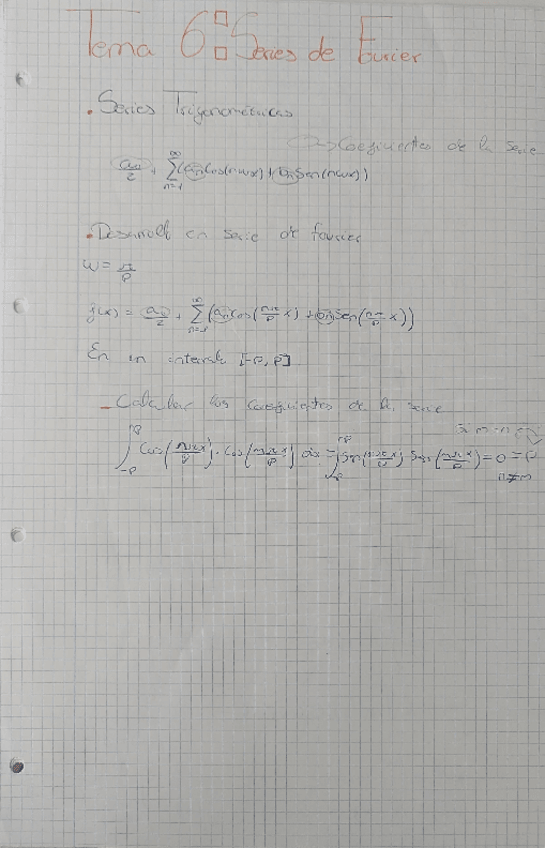 Tema 6: Series de Fourier
. Series Trigonométricas
→ Coeficientes de la serie
a₀/2 + ∑_{n=1}^{∞} (aₙ cos(nwx) + bₙ sen(nwx))
. Desarroll en serie de fourier
w = π/P
f(x) = a₀/2 + ∑_{n=1}^{∞} (aₙ cos(nπ/P x) + bₙ sen(nπ/P x))
En un interval [-P, P]
- Calcular los coeficientes de la serie
∫_{-P}^{P} cos(nπx/P) · cos(mπx/P) dx = ∫_{-P}^{P} sen(nπx/P) sen(mπx/P) = 0 = P
n≠m